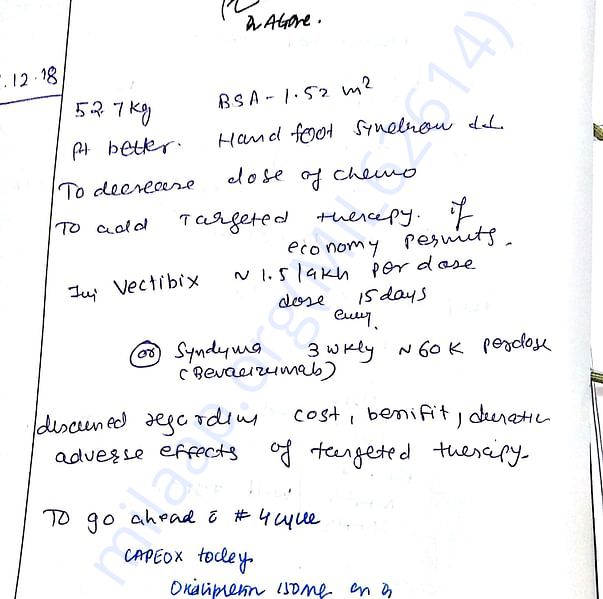 Rx Adore.
.12.18
52.7kg BSA - 1.52 m²
Pt better. Hand foot Syndrom ↓↓.
To decrease dose of chemo
To add Targeted therapy. if
economy permits.
Inj Vectibix ~ 1.5 lakh per dose
dose 15 days
every.
(or) Syndyma 3 wkly ~ 60 K perdose
(Bevacizumab)
discussed regarding cost, benifit, duratic
adverse effects of targeted therapy.
TO go ahead c # 4 cycle
CAPEOX today.
150mg
milaap.org(MIL62614)